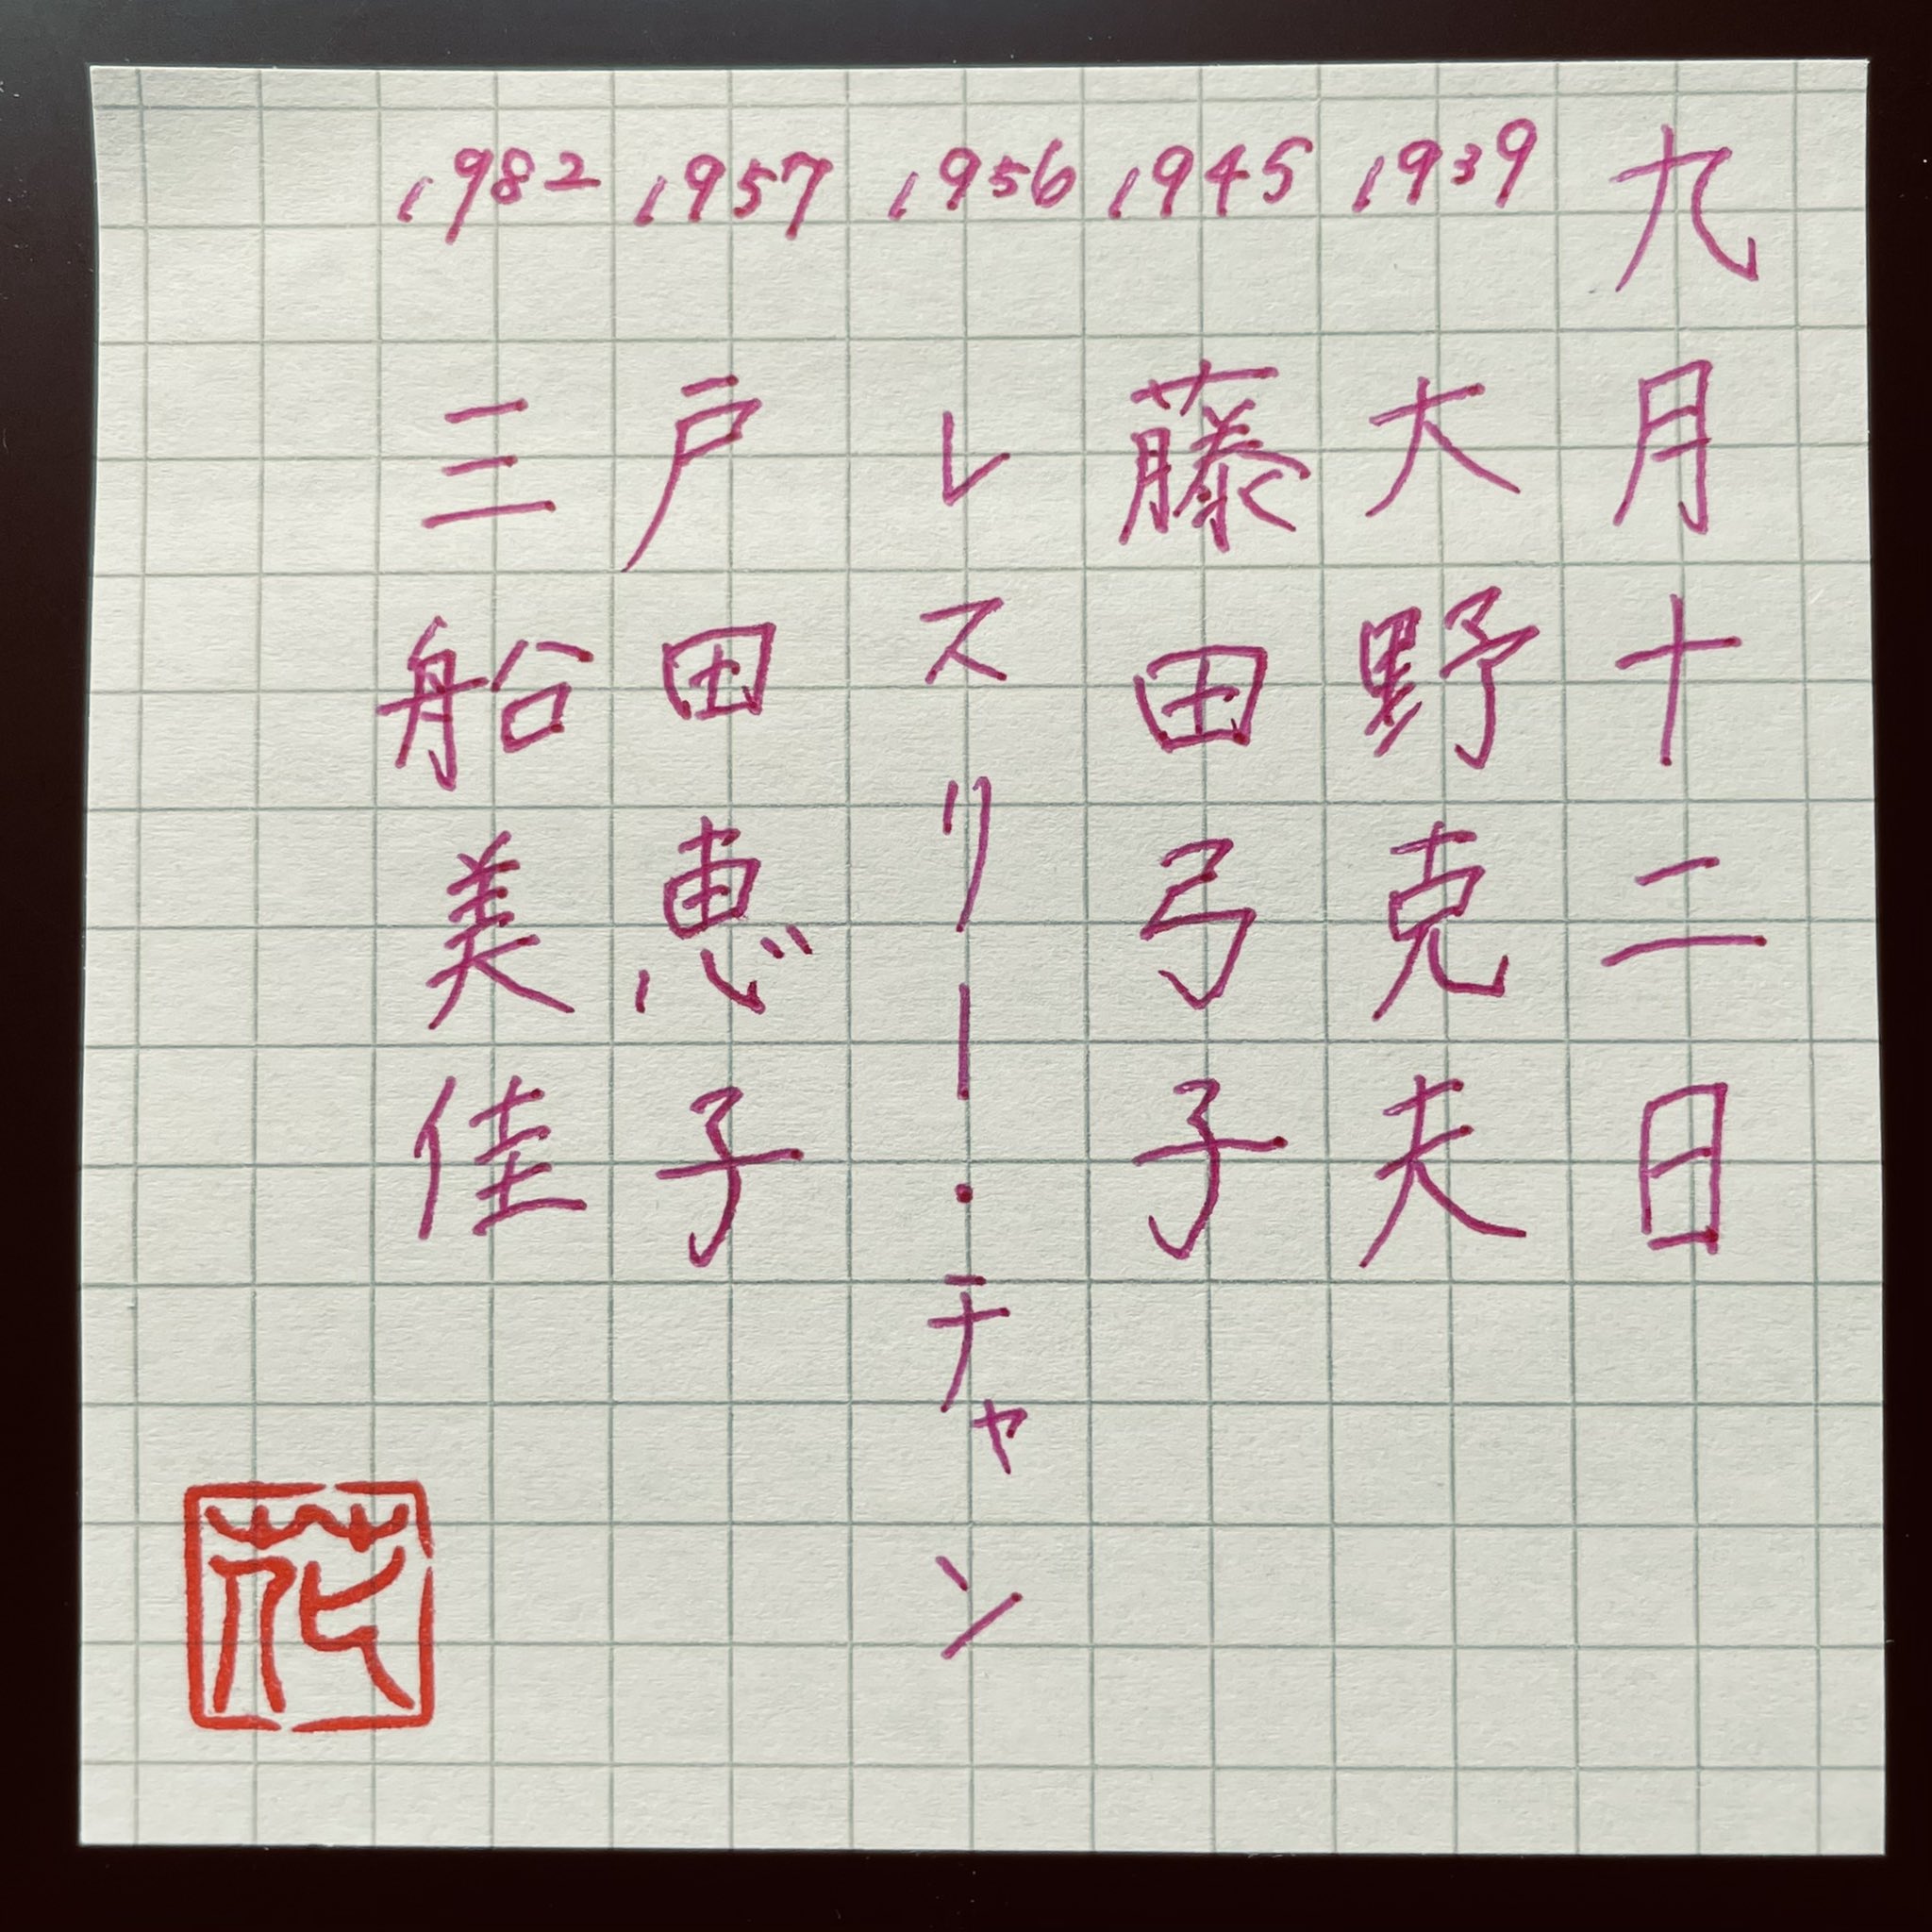 九月十二日
1939 大野克夫
1945 藤田弓子
1956 レスリー・チャン
1957 戸田恵子
1982 三船美佳
花